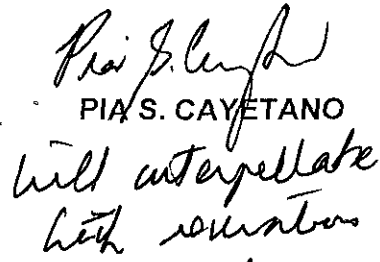 Pia S. Cayetano
PIA S. CAYETANO
will interpellate
with reservations